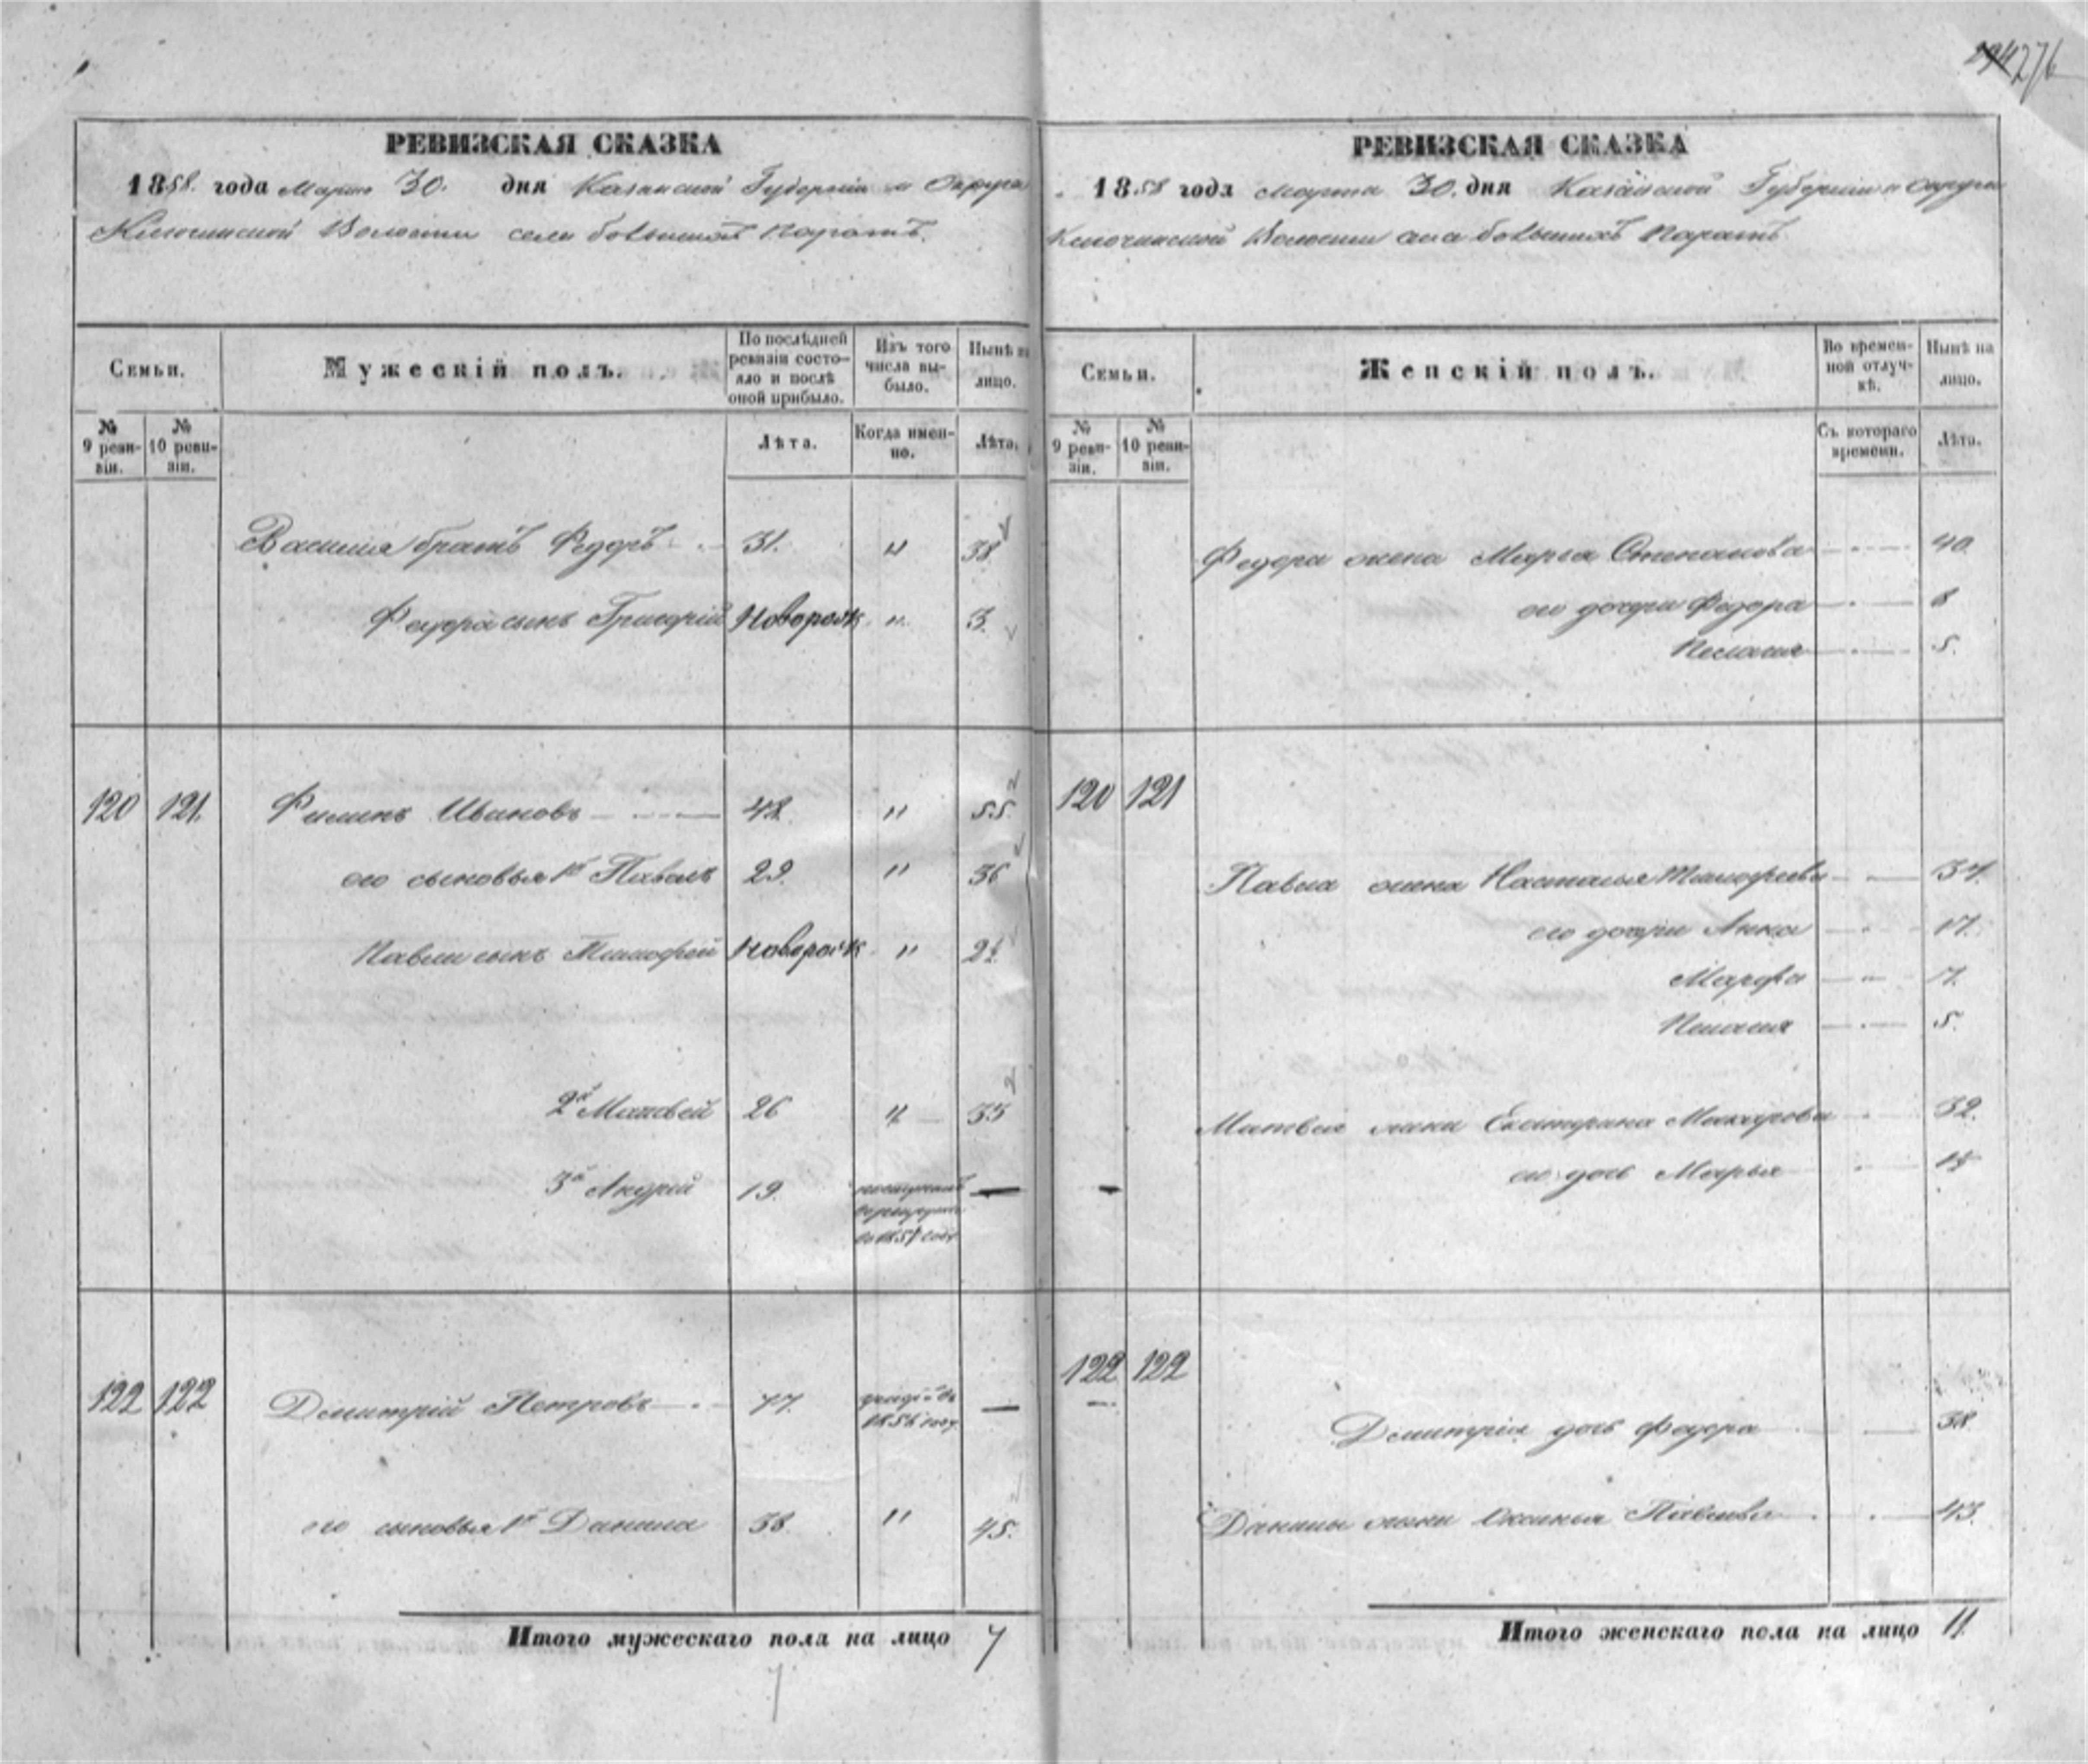 276
РЕВИЗСКАЯ СКАЗКА
1858 года Марта 30. дня Казанской Губернии и Округа
Волости села большихъ Паратъ.
Семьи.
Мужескій полъ.
По послѣдней ревизіи состояло и послѣ оной прибыло.
Изъ того числа выбыло.
Нынѣ на лицо.
№ 9 ревизіи.
№ 10 ревизіи.
Лѣта.
Когда именно.
Лѣта.
Василія братъ Федоръ 31. " 38
Федора сынъ Григорій Новорож " 3.
120 121. Филипъ Ивановъ 48. " 55.
его сыновья 1й Павелъ 29. " 36
Павла сынъ Тимофей Новорож "
2й Матвей 26 " 33
3й Андрей 19. —
122 122 Дмитрій Петровъ 77. —
его сыновья 1й Данила 38. " 45.
Итого мужескаго пола на лицо 7
7
РЕВИЗСКАЯ СКАЗКА
1858 года Марта 30. дня Казанской Губернии и Округа
Волости села большихъ Паратъ
Семьи.
Женскій полъ.
Во временной отлучкѣ.
Нынѣ на лицо.
№ 9 ревизіи.
№ 10 ревизіи.
Съ котораго времени.
Лѣта.
Федора жена Марья Степанова 40
его дочери Федора 8
Пелагия 5.
120 121
Павла жена Настасья Тимофеева 37.
его дочери Анна 17.
Марфа 7.
Пелагия 5.
Матвея жена Екатерина Макарова 32.
его дочь Марья
122 122
Дмитрія дочь Федора 38
Данилы жена Аксинья Павлова 43.
Итого женскаго пола на лицо 11.